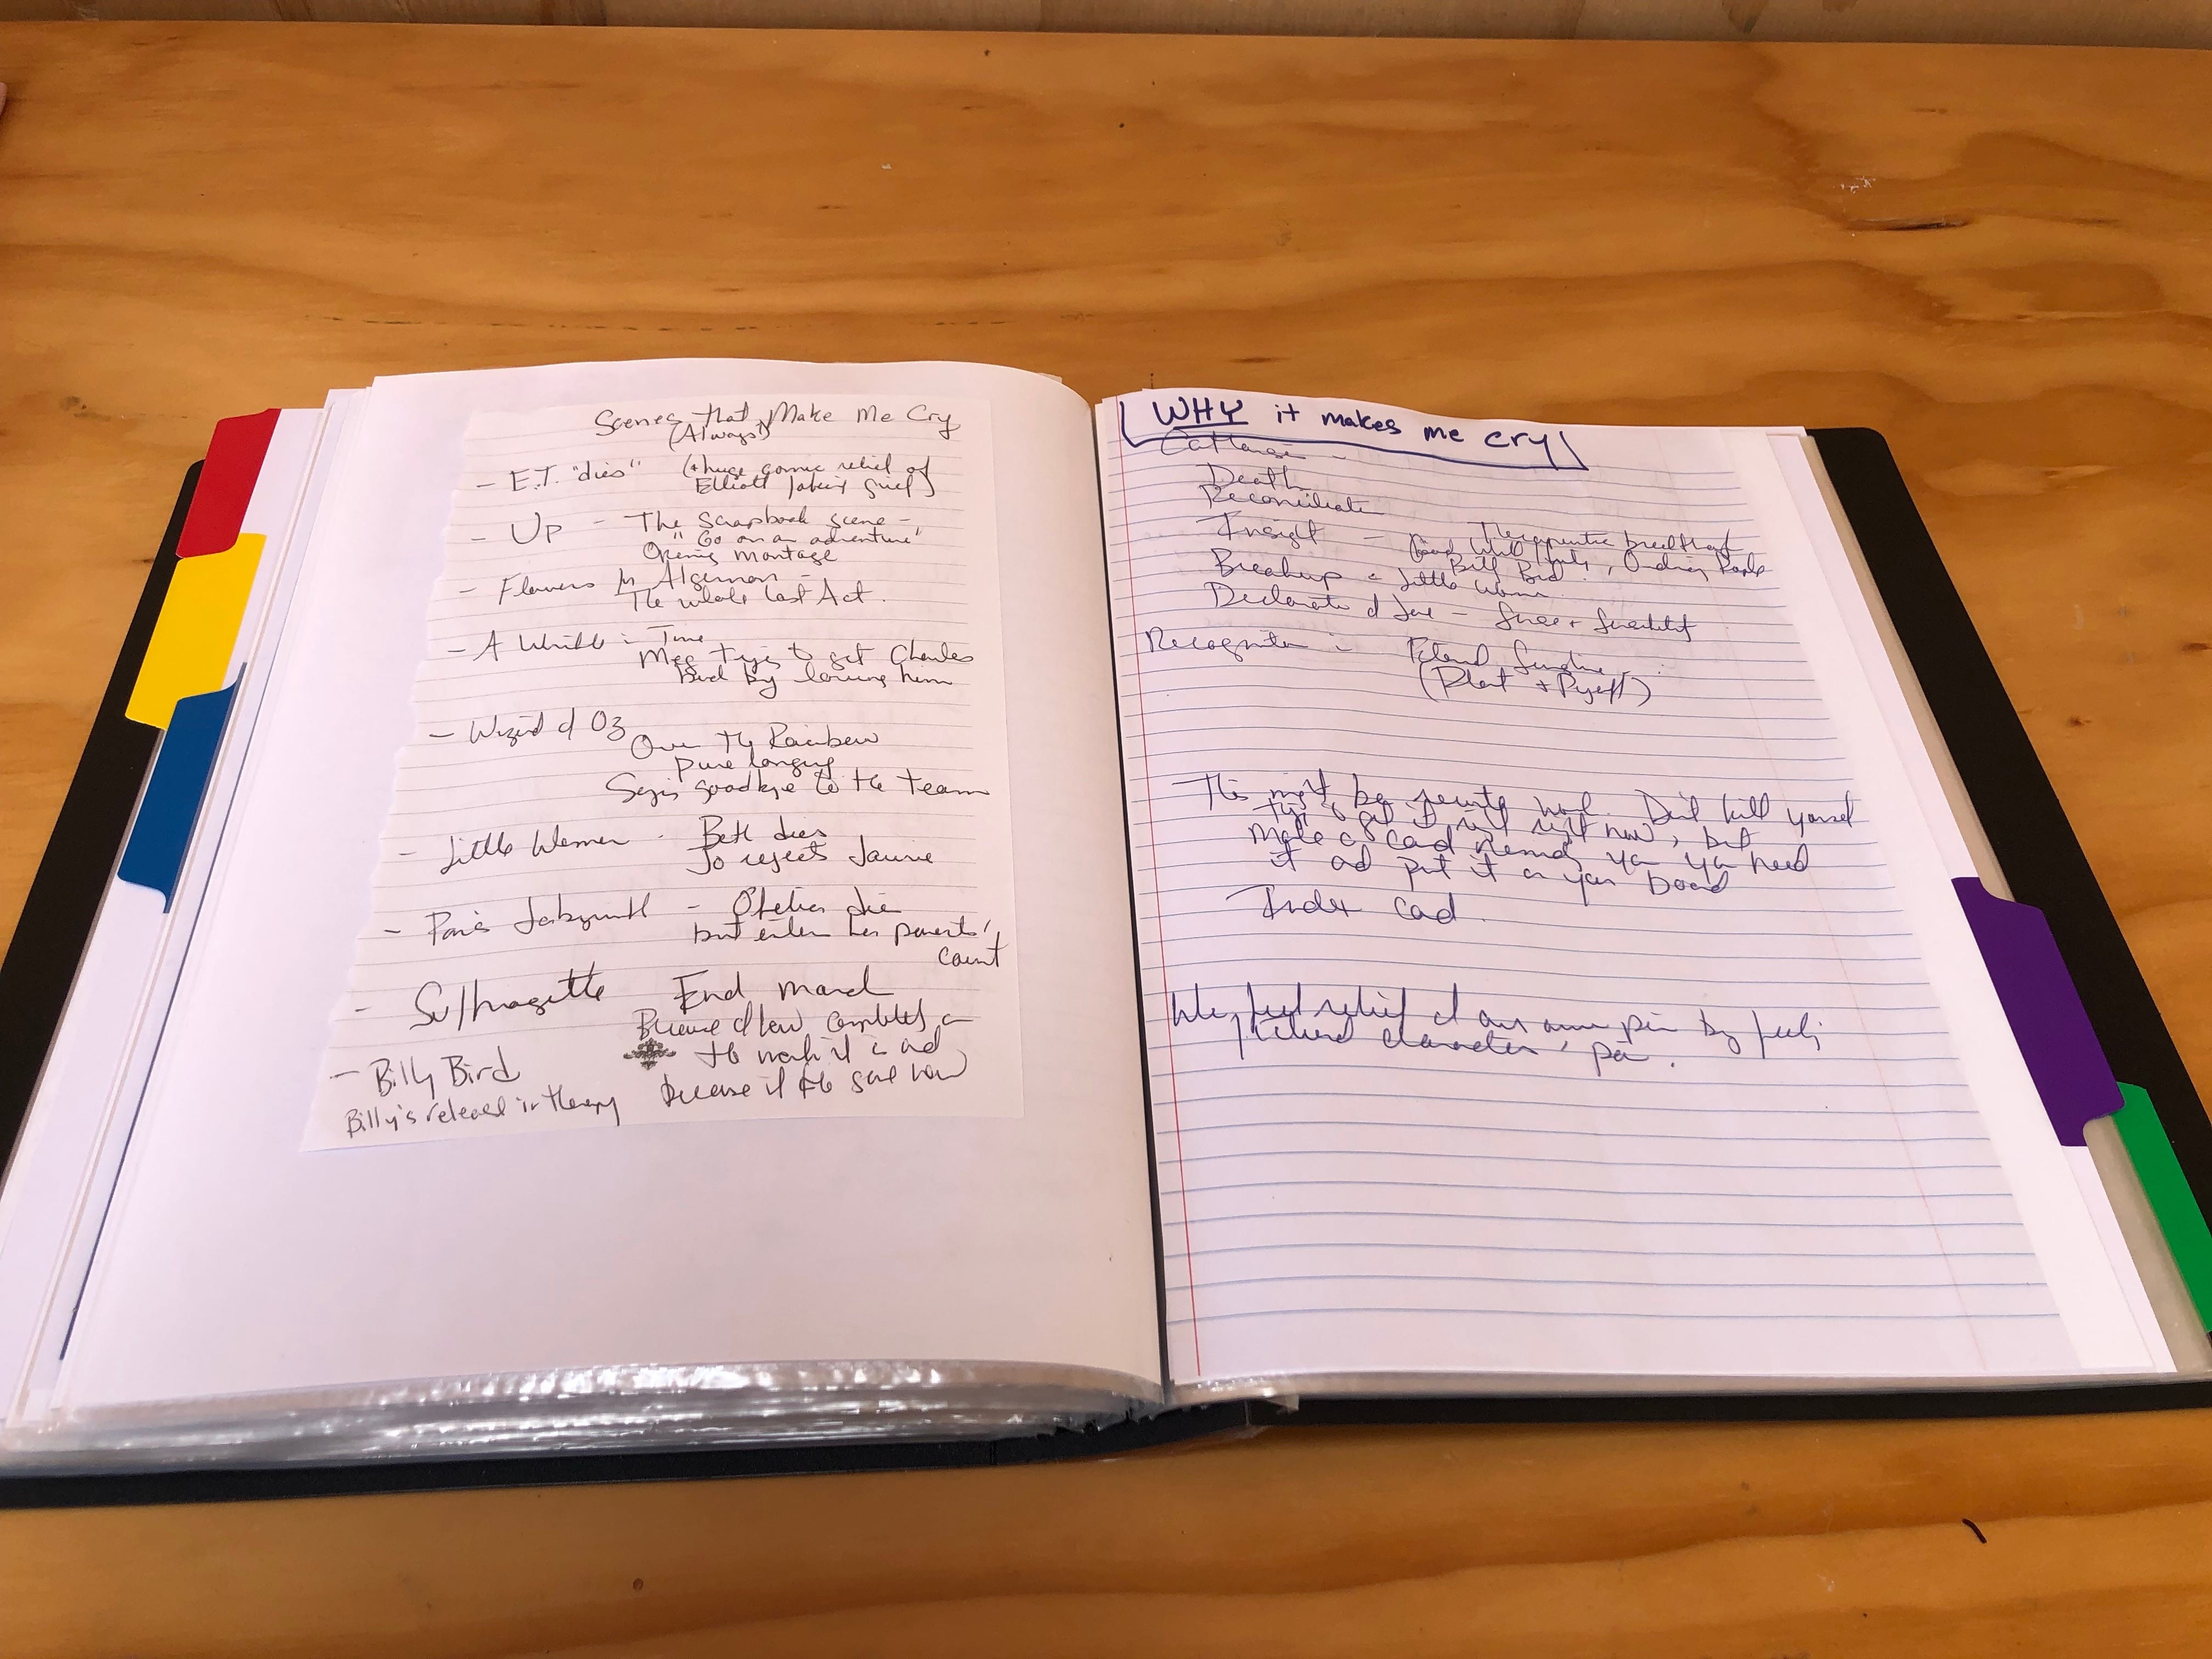 Scenes that Make Me Cry
(Always)
- E.T. "dies" (+ huge comic relief of
Elliott faking grief)
- Up - The scrapbook scene -
"Go on an adventure"
Opening montage
- Flowers for Algernon -
The whole last Act.
- A Wrinkle in Time
Meg tries to get Charles
by loving him
- Wizard of Oz
Over the Rainbow
pure longing
Says goodbye to the team
- Little Women - Beth dies
Jo rejects Laurie
- Pan's Labyrinth - Ofelia dies
but enters her parents'
court
- Suffragette End march
Because of how
the work it is and
because of the
- Billy Bird
Billy's release in therapy
WHY it makes me cry
Catharsis -
Death
Reconciliation
Insight - Therapeutic breakthrough
Good Will Hunting, Ordinary People
Billy Bird
Breakup - Little Women
Declaration of love - Sense + Sensibility
Recognition -
(Plant + Payoff)
This might be rewrite work. Don't kill yourself
trying to get it right now, but
make a card reminding you you need
it and put it on your board
Index card.
We feel relief of our own pain by feeling
fictional characters' pain.